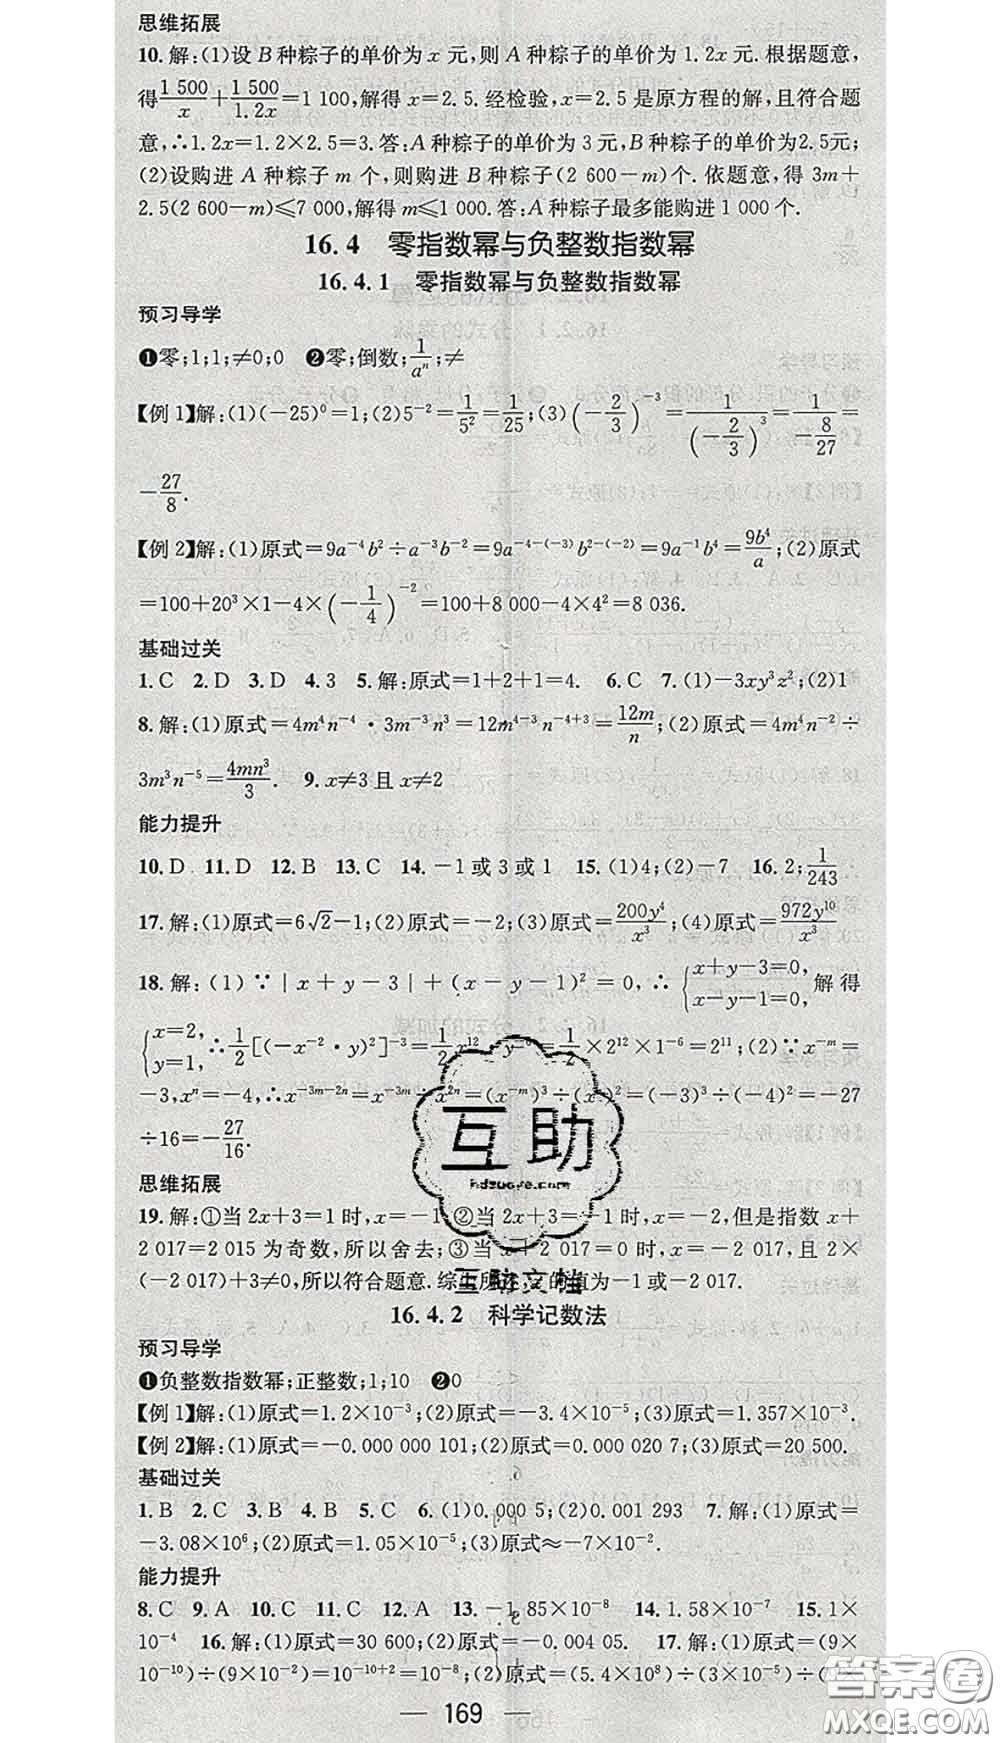 思维拓展
10. 解:(1)设 B 种粽子的单价为 x 元,则 A 种粽子的单价为 1.2x 元.根据题意,
得 1 500/x + 1 500/1.2x = 1 100,解得 x=2.5.经检验,x=2.5 是原方程的解,且符合题
意,∴1.2x=1.2×2.5=3.答:A 种粽子的单价为 3 元,B 种粽子的单价为2.5元;
(2)设购进 A 种粽子 m 个,则购进 B 种粽子(2 600-m)个.依题意,得 3m+
2.5(2 600-m)≤7 000,解得 m≤1 000.答:A 种粽子最多能购进 1 000 个.
16.4 零指数幂与负整数指数幂
16.4.1 零指数幂与负整数指数幂
预习导学
❶零;1;1;≠0;0 ❷零;倒数;1/aⁿ;≠
【例 1】解:(1)(-25)⁰=1;(2)5⁻²=1/5²=1/25;(3)(-2/3)⁻³=1/(-2/3)³=1/(-8/27)=
-27/8.
【例 2】解:(1)原式=9a⁻⁴b²÷a⁻³b⁻²=9a⁻⁴⁻⁽⁻³⁾b²⁻⁽⁻²⁾=9a⁻¹b⁴=9b⁴/a;(2)原式
=100+20³×1-4×(-1/4)⁻²=100+8 000-4×4²=8 036.
基础过关
1.C 2.D 3.D 4.3 5.解:原式=1+2+1=4. 6.C 7.(1)-3xy³z²;(2)1
8.解:(1)原式=4m⁴n⁻⁴·3m⁻³n³=12m⁴⁻³n⁻⁴⁺³=12m/n;(2)原式=4m⁴n⁻²÷
3m³n⁻⁵=4mn³/3. 9.x≠3 且 x≠2
能力提升
10.D 11.D 12.B 13.C 14.-1 或 3 或 1 15.(1)4;(2)-7 16.2;1/243
17.解:(1)原式=6√2-1;(2)原式=-2;(3)原式=200y⁴/x³;(4)原式=972y¹⁰/x³
18.解:(1)∵|x+y-3|+(x-y-1)²=0,∴{x+y-3=0, x-y-1=0, 解得
{x=2, y=1, ∴1/2[(-x⁻²·y)²]⁻³=1/2x¹²·y⁻⁶=1/2×2¹²×1⁻⁶=2¹¹;(2)∵x⁻ᵐ=
-3,xⁿ=-4,∴x⁻³ᵐ⁻²ⁿ=x⁻³ᵐ÷x²ⁿ=(x⁻ᵐ)³÷(xⁿ)²=(-3)³÷(-4)²=-27
÷16=-27/16.
思维拓展
19.解:①当 2x+3=1 时,x=-1;②当 2x+3=-1 时,x=-2,但是指数 x+
2 017=2 015 为奇数,所以舍去;③当 x+2 017=0 时,x=-2 017,且 2×
(-2 017)+3≠0,所以符合题意.综上所述,x的值为-1或-2 017.
16.4.2 科学记数法
预习导学
❶负整数指数幂;正整数;1;10 ❷0
【例 1】解:(1)原式=1.2×10⁻³;(2)原式=-3.4×10⁻⁵;(3)原式=1.357×10⁻³.
【例 2】解:(1)原式=-0.000 000 101;(2)原式=0.000 020 7;(3)原式=20 500.
基础过关
1.B 2.C 3.B 4.B 5.C 6.(1)0.000 5;(2)0.001 293 7.解:(1)原式=
-3.08×10⁶;(2)原式=1.05×10⁻⁵;(3)原式≈-7×10⁻².
能力提升
8.C 9.A 10.C 11.C 12.A 13.-1.85×10⁻⁸ 14.1.58×10⁻⁷ 15.1×
10⁻⁴ 16.解:(1)原式=30 600;(2)原式=-0.004 05. 17.解:(1)原式=(9×
10⁻¹⁰)÷(9×10⁻²)=10⁻¹⁰⁺²=10⁻⁸;(2)原式=(5.4×10⁸)÷(3×10⁻⁵)÷(3×
— 169 —
互助
hdzuoye.com
互助文档
答案圈
MXQE.COM